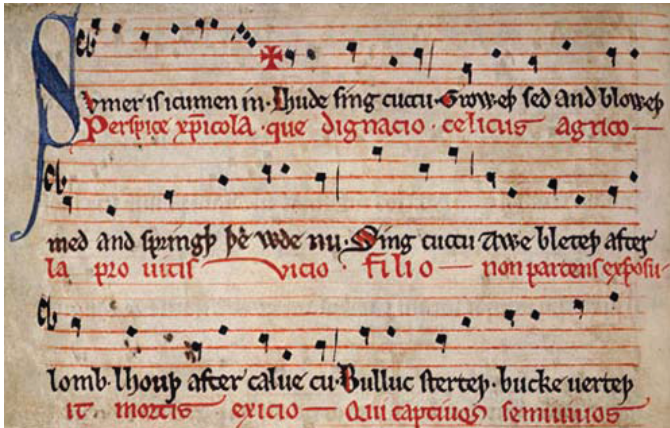 Svmer is icumen in · Lhude sing cuccu · Groweþ sed and bloweþ
Perspice xp̄icola · que dignacio · celicus agrico—
med and springþ þe wde nu · Sing cuccu Awe bleteþ after
la pro uitis vicio · filio — non parcens exposu-
lomb · lhouþ after calue cu · Bulluc sterteþ · bucke uerteþ
it mortis exicio — Qui captiuos semiuiuos